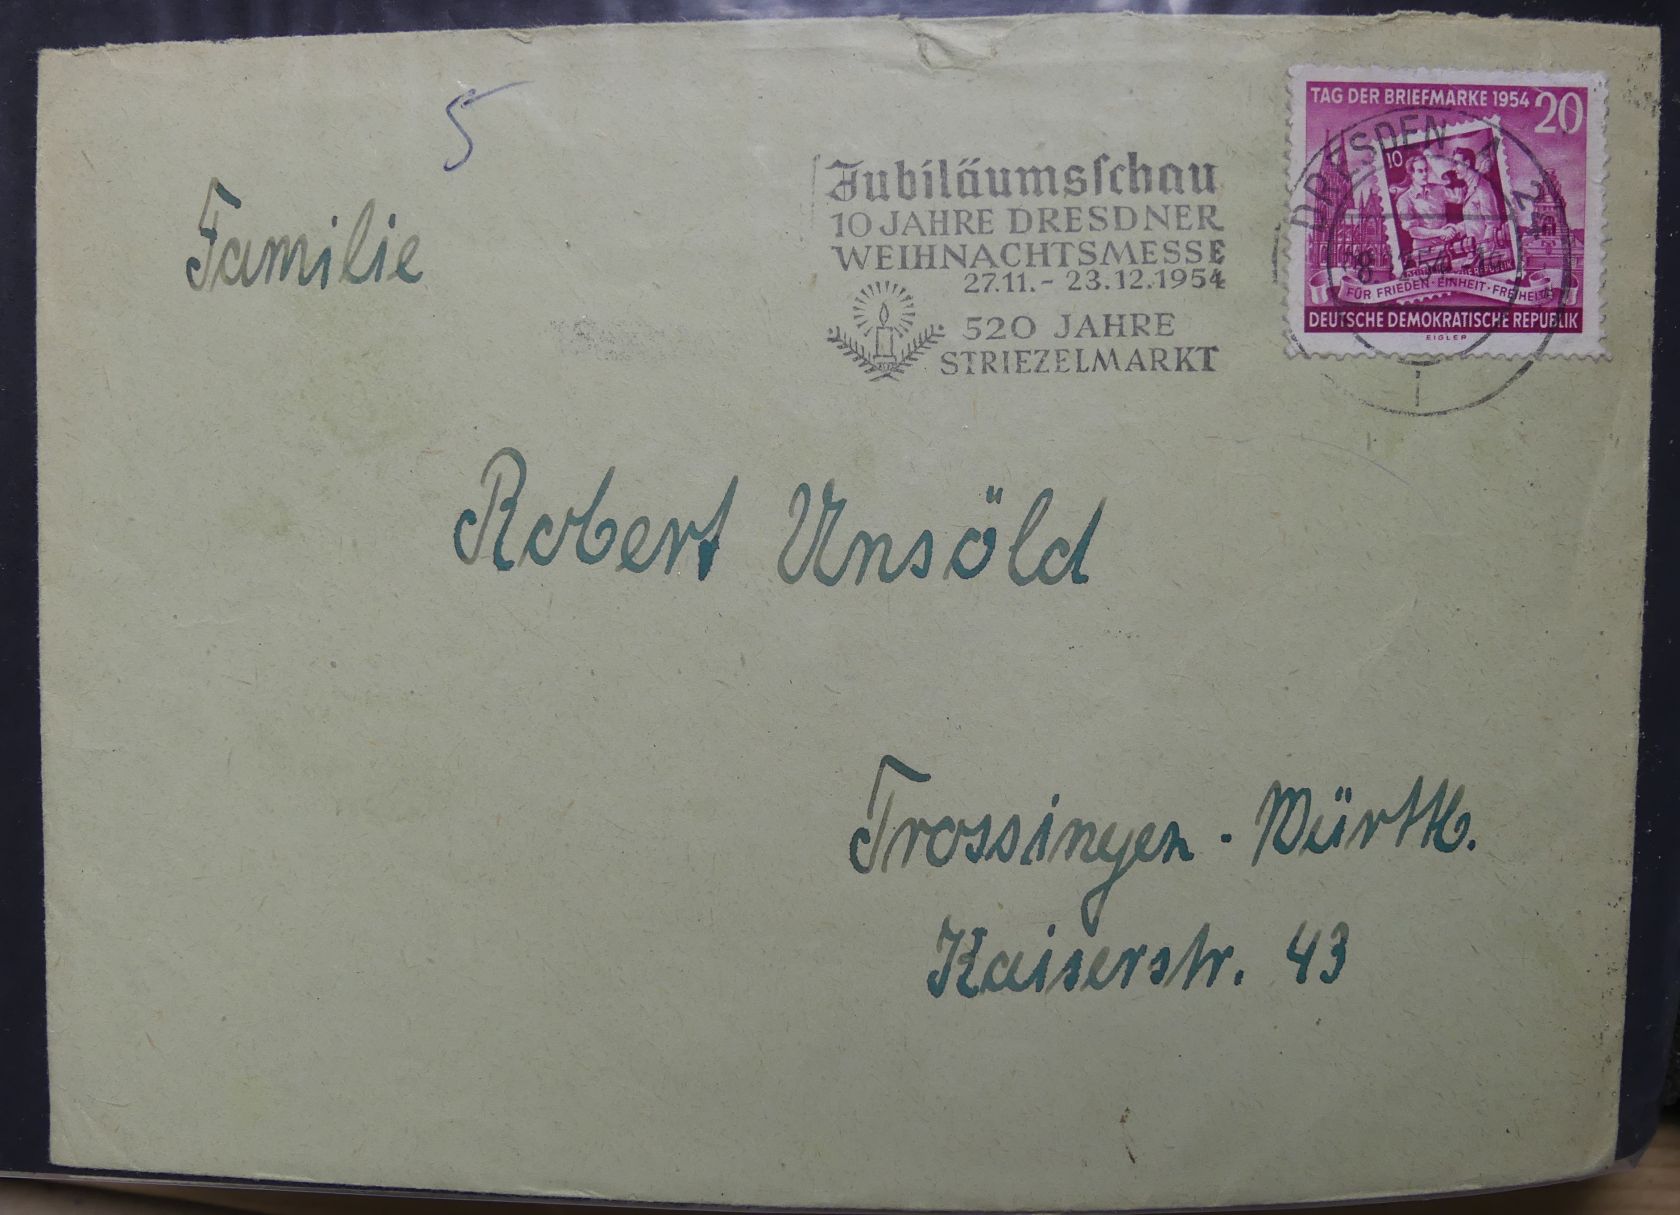 5
Familie
Jubiläumsschau
10 JAHRE DRESDNER
WEIHNACHTSMESSE
27.11.- 23.12.1954
520 JAHRE
STRIEZELMARKT
TAG DER BRIEFMARKE 1954 20
10
DRESDEN
FÜR FRIEDEN · EINHEIT · FREIHEIT
DEUTSCHE DEMOKRATISCHE REPUBLIK
EIGLER
Robert Unsöld
Trossingen - Württb.
Kaiserstr. 43